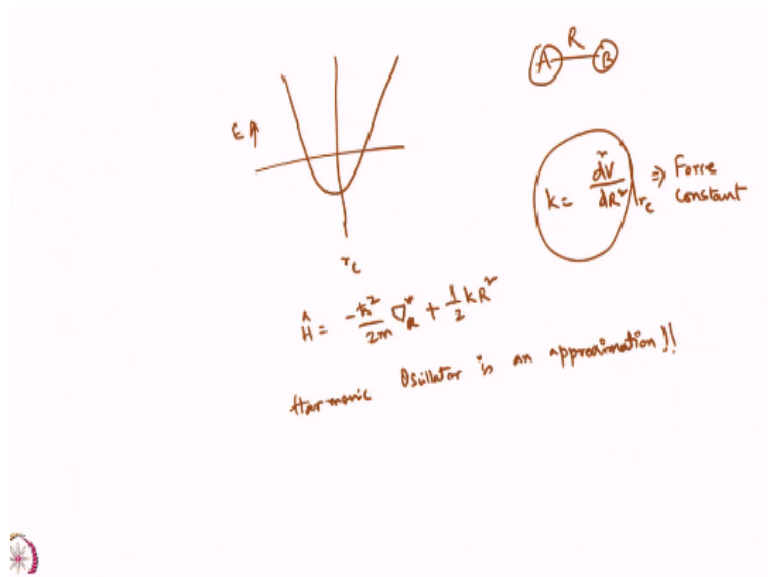 R
A B
E ↑
k = d²V/dR² |rₑ ⇒ Force
constant
rₑ
Ĥ = -ħ²/2m ∇²_R + 1/2 kR²
Harmonic Oscillator is an approximation!!